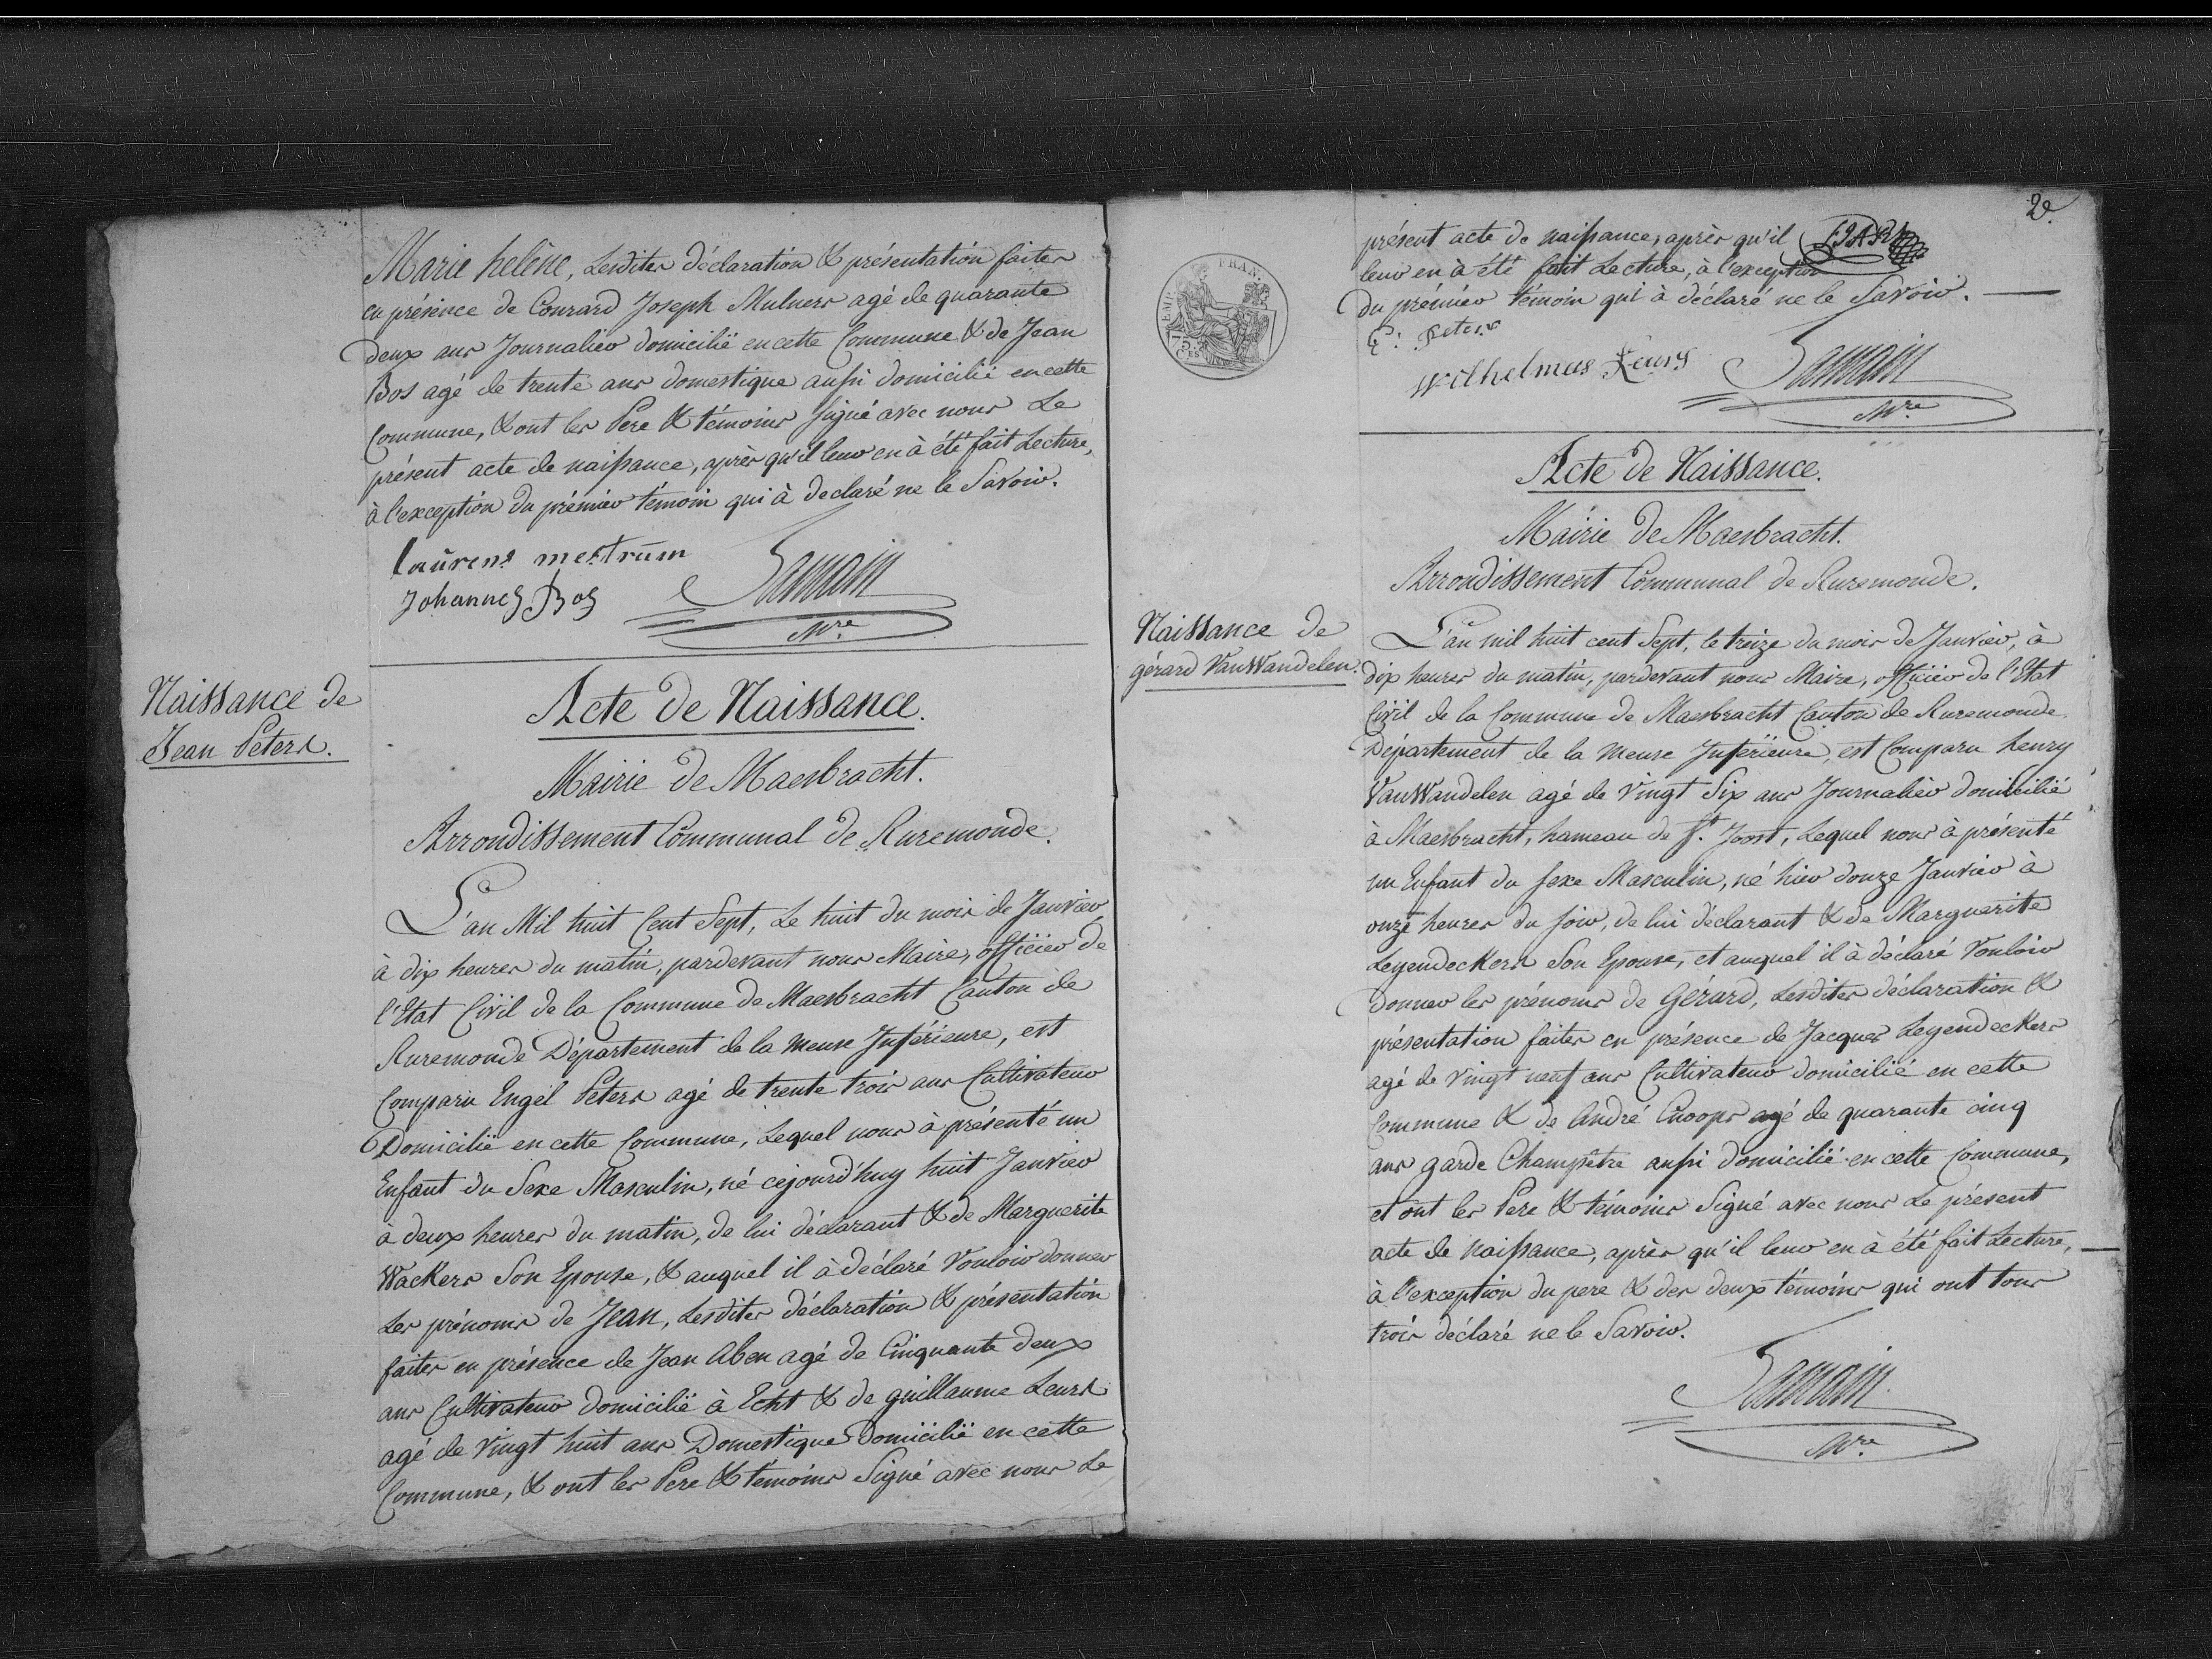 Marie helène, Lesdites déclaration & présentation faites
en présence de Conrard Joseph Mulners agé de quarante
deux ans Journalier domicilié en cette Commune & de Jean
Bos agé de trente ans domestique aussi domicilié en cette
Commune, & ont les Pere & témoins signé avec nous Le
présent acte de naissance, après qu'il leur en à été fait Lecture,
à l'exception du prémier témoin qui à declaré ne le Savoir.
laürens mestrüm
Johannes Bos
Samain
Mre
Naissance de
Jean Peters.
Acte de Naissance.
Mairie de Maesbracht.
Arrondissement Communal de Ruremonde.
L'an Mil huit Cent Sept, Le huit du mois de Janvier
à dix heures du matin, pardevant nous Maire, officier de
l'Etat Civil de la Commune de Maesbracht Canton de
Ruremonde Département de la Meuse Inférieure, est
Comparu Engel Peters agé de trente trois ans Cultivateur
Domicilié en cette Commune, Lequel nous à présenté un
Enfant du Sexe Masculin, né cejourd'huy huit Janvier
à deux heures du matin, de lui déclarant & de Marguerite
Wackers Son Epouse, & auquel il à déclaré Vouloir donner
Les prénoms de Jean, Lesdites déclaration & présentation
faites en présence de Jean Aben agé de Cinquante deux
ans Cultivateur domicilié à Echt & de guillaume Leurs
agé de Vingt huit ans Domestique Domicilié en cette
Commune, & ont les Pere & témoins Signé avec nous Le
2e
présent acte de naissance, après qu'il
leur en à été fait Lecture, à l'exception
du prémier témoin qui à déclaré ne le Savoir.
E: Peters
Wilhelmus Leurs
Samain
Mre
EMP. FRAN.
75
CES
Acte de Naissance.
Mairie de Maesbracht.
Arrondissement Communal de Ruremonde.
Naissance de
gérard VanWandelen.
L'an mil huit cent Sept, le treize du mois de Janvier, à
dix heures du matin, pardevant nous Maire, officier de l'Etat
Civil de la Commune de Maesbracht Canton de Ruremonde
Département de la Meuse Inférieure, est Comparu henry
VanWandelen agé de Vingt Six ans Journalier domicilié
à Maesbracht, hameau de St. Joost, Lequel nous à présenté
un Enfant du sexe Masculin, né hier douze Janvier à
onze heures du soir, de lui déclarant & de Marguerite
Legendeckers Son Epouse, et auquel il à déclaré Vouloir
donner les prénoms de Gérard, Lesdites déclaration &
présentation faites en présence de Jacques Legendeckers
agé de Vingt neuf ans Cultivateur domicilié en cette
Commune & de André Cnoops agé de quarante cinq
ans garde Champêtre aussi domicilié en cette Commune,
et ont les Pere & témoins Signé avec nous Le présent
acte de naissance, après qu'il leur en à été fait Lecture,
à l'exception du pere & des deux témoins qui ont tous
trois déclaré ne le Savoir.
Samain
Mre